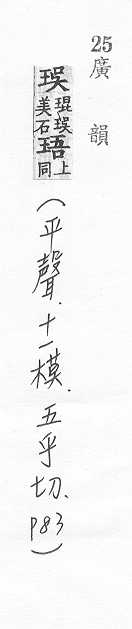 25廣韻
珸琨珸美石
珸上同
(平聲.十一模.五乎切.P83)